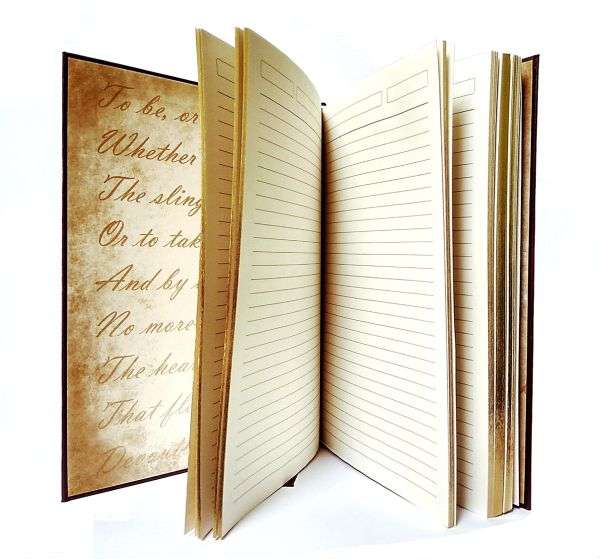 To be, or
Whether
The sling
Or to tak
And by
No more
The hea
That fl
Devoutl